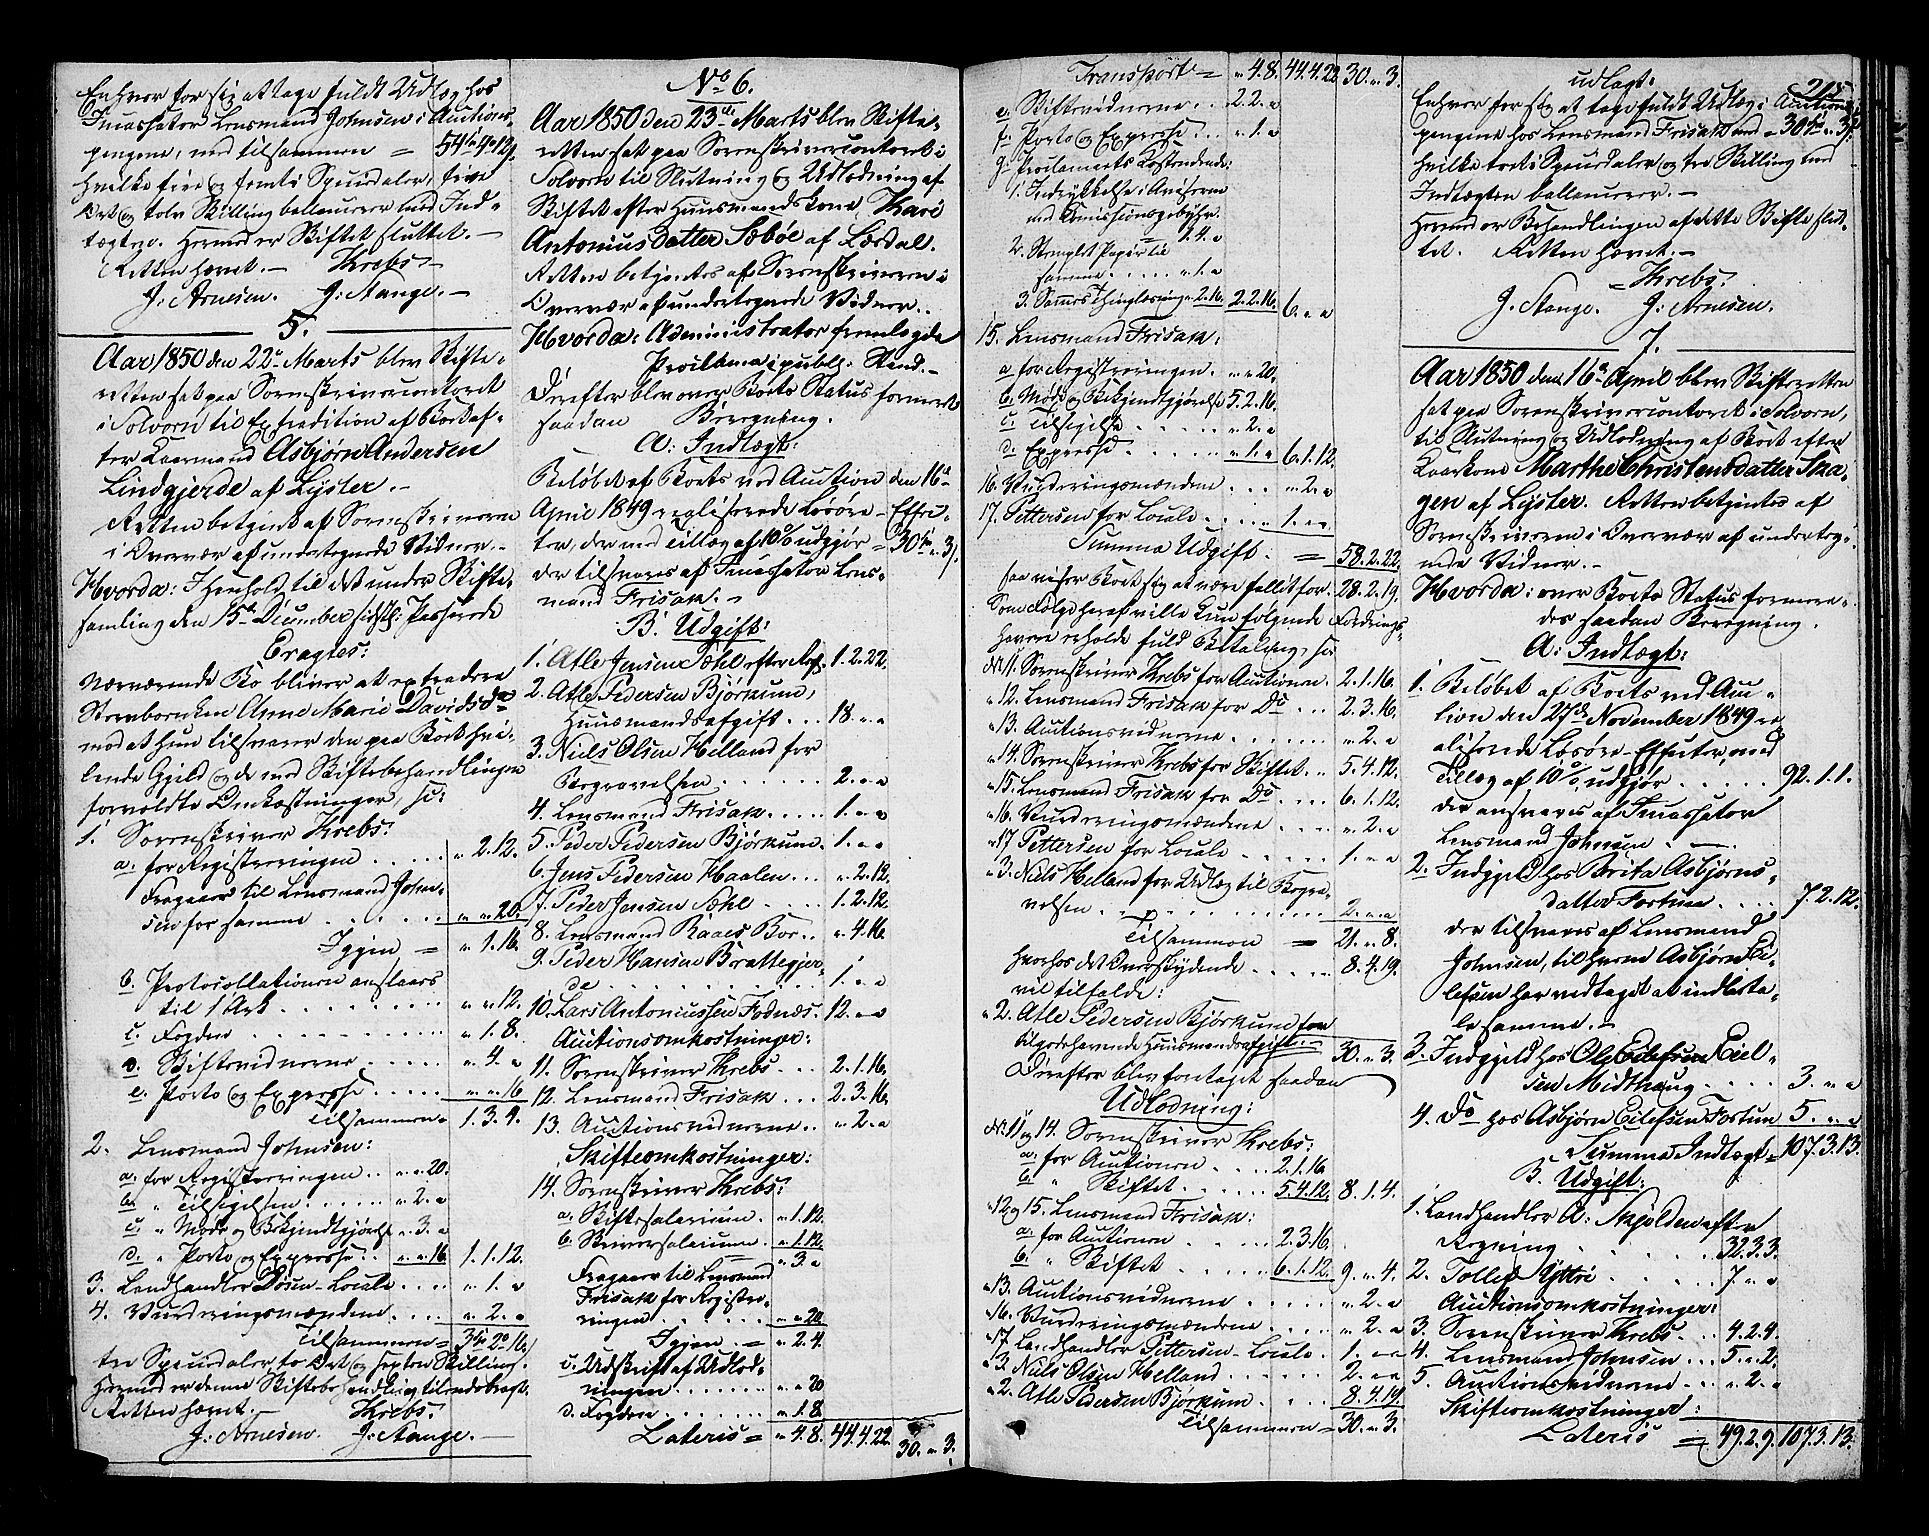 Enhver for sig at tage fuldt Udlæg hos
Incassator Lensmand Johnsen i Auctions-
pengene, med tilsammen = 54 Sp 4 o 12 s.
hvilke fire og femti Speciedaler, fire
Ort og tolv Skilling ballancerer med Ind-
tægten. Hermed er Skiftet sluttet. —
Retten hævet. — Krebs —
J. Arnesen. J: Stange. —
5.
Aar 1850 den 22de Marts blev Skifte-
retten sat paa Sorenskrivercontoret
i Solvorn til Extradition af Boet ef-
ter Kaarmand Asbjørn Andersen
Lindgjerde af Lyster. —
Retten betjent af Sorenskriveren
i Overvær af undertegnede Vidner. —
Hvorda: I Henhold til det under Skifte-
samling den 15de December sidstl: Passerede
Eragtes:
Nærværende Bo bliver at extradere
Stervboenken Anne Marie Davidsdr
mod at hun tilsvarer den paa Boet hvi-
lende Gjeld og de med Skiftebehandlingen
forvoldte Omkostninger, so:
1. Sorenskriver Krebs:
a. for Registreringen ..... „ 2.12.
Fragaaer til Lensmand John-
sen for samme ...... „ „ 20.
Igjen = „ 1.16.
b. Protocollationen anslaaes
til 1 Ark ........ „ „ 12.
c. Fogden ........ „ 1.8.
d. Skiftevidnerne ..... „ 4. „
e. Porto og Expresse ..... „ „ 16
Tilsammen = 1.3.4.
2. Lensmand Johnsen:
a. for Registreringen .. „ „ 20.
b. „ Tilsigelsen ..... „ 2. „
c. „ Møde og Bekjendtgjørelse „ 3. „
d. „ Porto og Expresse .. „ „ 16. 1.1.12.
3. Landhandler Døsen - Locale .... „ 1. „
4. Vurderingsmændene .... „ 2. „
Tilsammen = 3 Sp 2 o 16 s
tre Speciedaler, to Ort og sexten Skilling.
Hermed er denne Skiftebehandling tilendebragt.
Retten hævet. — Krebs.
J: Arnesen. J: Stange. —
No 6.
Aar 1850 den 23de Marts blev Skifte-
retten sat paa Sorenskrivercontoret i
Solvorn til Slutning og Udlodning af
Skiftet efter Huusmandskone, Kari
Antoniusdatter Sæbøe af Lærdal.
Retten betjentes af Sorenskriveren i
Overvær af undertegnede Vidner. .
Hvorda: Administrator fremlagde
Proclama i publ: Stand. —
Derefter blev over Boets Status formeret
saadan Beregning.
A: Indtægt:
Beløbet af Boets ved Auction den 16de
April 1849 realiserede Løsøre-Effec-
ter, der med Tillæg af 10% udgjør = 30 Sp „ 3 s.
der tilsvares af Incassator Lens-
mand Frisak. —
B. Udgift:
1. Atle Jensen Sæhl efter Regn. 1.2.22.
2. Atle Pedersen Bjørkum,
Huusmandsafgift ... 18. „ „
3. Niels Olsen Helland for
Begravelsen ...... 2. „ „
4. Lensmand Frisak ..... 1. „ „
5. Peder Pedersen Bjørkum. 1. „ „
6. Jens Pedersen Haalen ... „ 2.12.
7. Peder Jensen Sæhl ..... 1.2.12.
8. Lensmand Baaes Boe .. „ 4.16.
9. Peder Hansen Brattegjer-
de .......... 1. „ „
10. Lars Antoniussen Fodnæs. 12. „ „
Auctionsomkostninger:
11. Sorenskriver Krebs ... 2.1.16.
12. Lensmand Frisak ... 2.3.16.
13. Auctionsvidnerne .. „ 2. „
Skifteomkostninger:
14. Sorenskriver Krebs:
a. Skiftesalarium . „ 1.12.
b. Skriversalarium . „ 1.12.
= „ 3. „
Fragaaer til Lensmand
Frisak for Registre-
ringen ...... „ „ 20
Igjen = „ 2.4.
c. Udskrift af Udlod-
ningen ...... „ „ 20
d. Fogden ...... „ 1.8
Lateris = „ 4.8. 44.4.22. 30. „ 3.
Transport = „ 4.8. 44.4.22. 30. „ 3.
e. Skiftevidnerne .. „ 2.2. „
f. Porto og Expresse ... „ 1. „
g. Proclamats Kostende:
1. Indrykkelse i Aviserne
med Omissionsgebyhr.
1.4. „
2. Stemplet Papir til
samme ..... „ 1. „
3. Sammes Thinglæsning „ 2.16. 2.2.16. 6. „ „
15. Lensmand Frisak:
a. for Registreringen . „ „ 20.
b. Møde og Bekjendtgjørelse 5.2.16.
c. Tilsigelse ..... „ 2. „
d. Expresse ..... „ 1. „ 6.1.12.
16. Vurderingsmændene ... „ 2. „
17. Pettersen for Locale .... 1. „ „
Summa Udgift. = 58.2.22.
saa viser Boet sig at være fallit for. 28.2.19.
Som Følge heraf ville kun følgende Fordrings-
havere erholde fuld Betaling, so:
No 11. Sorenskriver Krebs for Auctionen . 2.1.16.
„ 12. Lensmand Frisak for Do ... 2.3.16.
„ 13. Auctionsvidnerne ...... „ 2. „
„ 14. Sorenskriver Krebs for Skiftet .. 5.4.12.
„ 15. Lensmand Frisak for Do .... 6.1.12.
„ 16. Vurderingsmændene .... „ 2. „
„ 17 Pettersen for Locale ..... 1. „ „
„ 3. Niels Helland for Udlæg til Begra-
velsen ............ 2. „ „
Tilsammen = 21. „ 8.
hvorhos det Overskydende ..... 8.4.19.
vil tilfalde:
„ 2. Atle Pedersen Bjørkum for
tilgodehavende Huusmandsafgift — 30. „ 3.
Derefter blev foretaget saadan
Udlodning:
No 11 og 14. Sorenskriver Krebs:
a. for Auctionen .... 2.1.16
b. „ Skiftet ...... 5.4.12. 8.1.4.
„ 12 og 15. Lensmand Frisak:
a. for Auctionen ..... 2.3.16.
b. „ Skiftet ..... 6.1.12. 9. „ 4.
„ 13. Auctionsvidnerne ...... „ 2. „
„ 16. Vurderingsmændene .... „ 2. „
„ 17. Landhandler Pettersen - Locale . 1. „ „
„ 3. Niels Olsen Helland ...... 2. „ „
„ 2. Atle Pedersen Bjørkum .... 8.4.19.
Tilsammen = 30. „ 3.
215.
udlagt:
Enhver for sig at tage fuldt Udlæg i Auctions-
pengene hos Lensmand Frisak med = 30 Sp „ 3 s.
hvilke tredi Speciedaler og tre Skilling med
Indtægten ballancerer. —
Hermed er Behandlingen af dette Skifte slut-
tet. Retten hævet. —
Krebs.
J. Stange. J: Arnesen.
7.
Aar 1850 den 16de April blev Skifteretten
sat paa Sorenskrivercontoret i Solvorn,
til Slutning og Udlodning af Boet efter
Kaarkone Marthe Christensdatter Skaa-
gen af Lyster. Retten betjentes af
Sorenskriveren i Overvær af underteg-
nede Vidner. —
Hvorda: over Boets Status formere-
des saadan Beregning.
A: Indtægt:
1. Beløbet af Boets ved Auc-
tion den 27de November 1849 re-
aliserede Løsøre-Effecter, med
Tillæg af 10%, udgjør ..... 92.1.1.
der ansvares af Incassator
Lensmand Johnsen. —
2. Indgjeld hos Brita Asbjørns-
datter Fortun ..... 7.2.12.
der tilsvares af Lensmand
Johnsen, til hvem Asbjørn Ei-
lefsen har vedtaget at indbeta-
le samme. —
3. Indgjeld hos Ole Eilefsen Eiel-
sen Midthaug ..... 3. „ „
4. Do hos Asbjørn Eilefsen Fortun 5. „ „
Summa Indtægt = 107.3.13.
B. Udgift:
1. Landhandler A: Skjolden efter
Regning ........ 32.3.3.
2. Tollef Yttri ...... 7. „ „
Auctionsomkostninger:
3. Sorenskriver Krebs ... 4.2.4.
4. Lensmand Johnsen ... 5. „ 2.
5. Auctionsvidnerne ... „ 2. „
Skifteomkostninger:
Lateris = 49.2.9. 107.3.13.